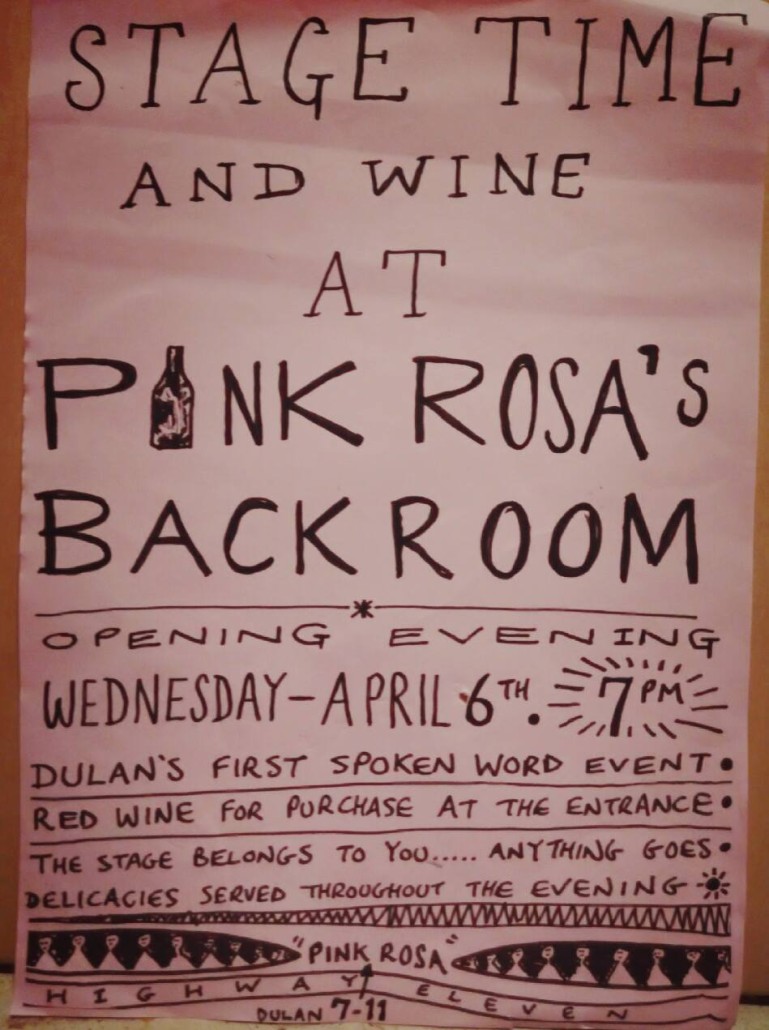 STAGE TIME
AND WINE
AT
PINK ROSA'S
BACKROOM
OPENING EVENING
WEDNESDAY-APRIL 6TH. 7PM
DULAN'S FIRST SPOKEN WORD EVENT•
RED WINE FOR PURCHASE AT THE ENTRANCE•
THE STAGE BELONGS TO YOU..... ANYTHING GOES•
DELICACIES SERVED THROUGHOUT THE EVENING
"PINK ROSA"
HIGHWAY ELEVEN
DULAN 7-11